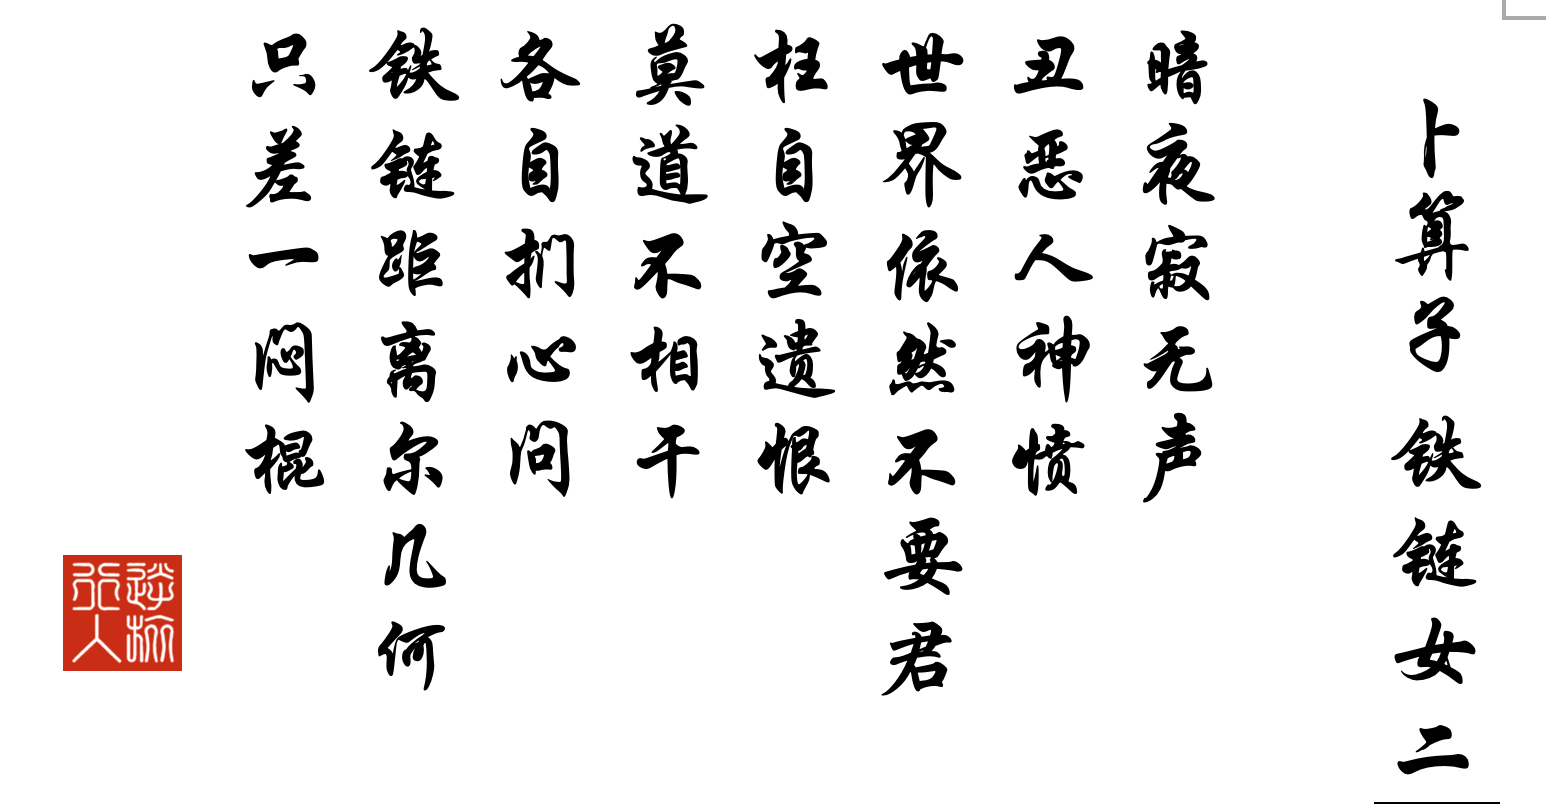 卜算子 铁链女二
暗夜寂无声
丑恶人神愤
世界依然不要君
枉自空遗恨
莫道不相干
各自扪心问
铁链距离尔几何
只差一闷棍